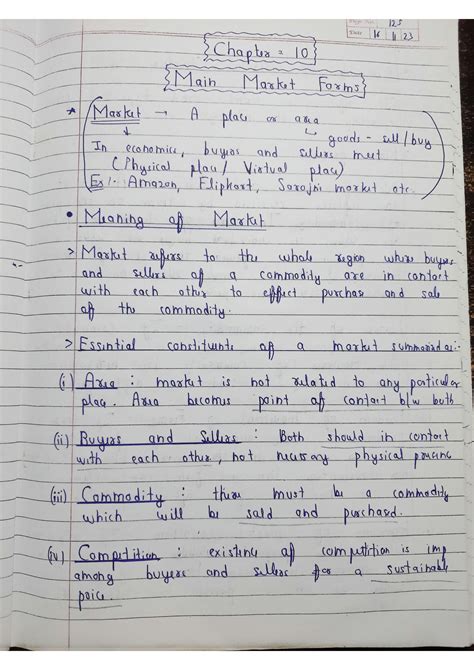 125
Date 16 11 23
Chapter = 10
Main Market Forms
* Market → A place or area
↓ ↳ goods - sell/buy
In economics, buyers and sellers meet
(Physical place/ Virtual place)
Ex:- Amazon, Flipkart, Sarojni market etc.
• Meaning of Market
> Market refers to the whole region where buyers
and sellers of a commodity are in contact
with each other to effect purchase and sale
of the commodity.
> Essential constituents of a market summarised as:-
(i) Area : market is not related to any particular
place. Area becomes point of contact b/w both
(ii) Buyers and Sellers : Both should in contact
with each other, not necessary physical
(iii) Commodity : there must be a commodity
which will be sold and purchased.
(iv) Competition : existence of competition is imp
among buyers and sellers for a sustainable
price.